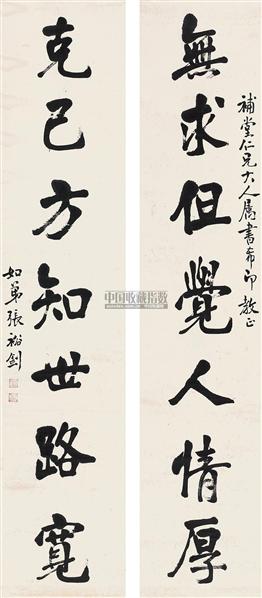 補堂仁兄大人属書希即教正
無求但覺人情厚
克己方知世路寬
如弟張裕釗
中国收藏指数